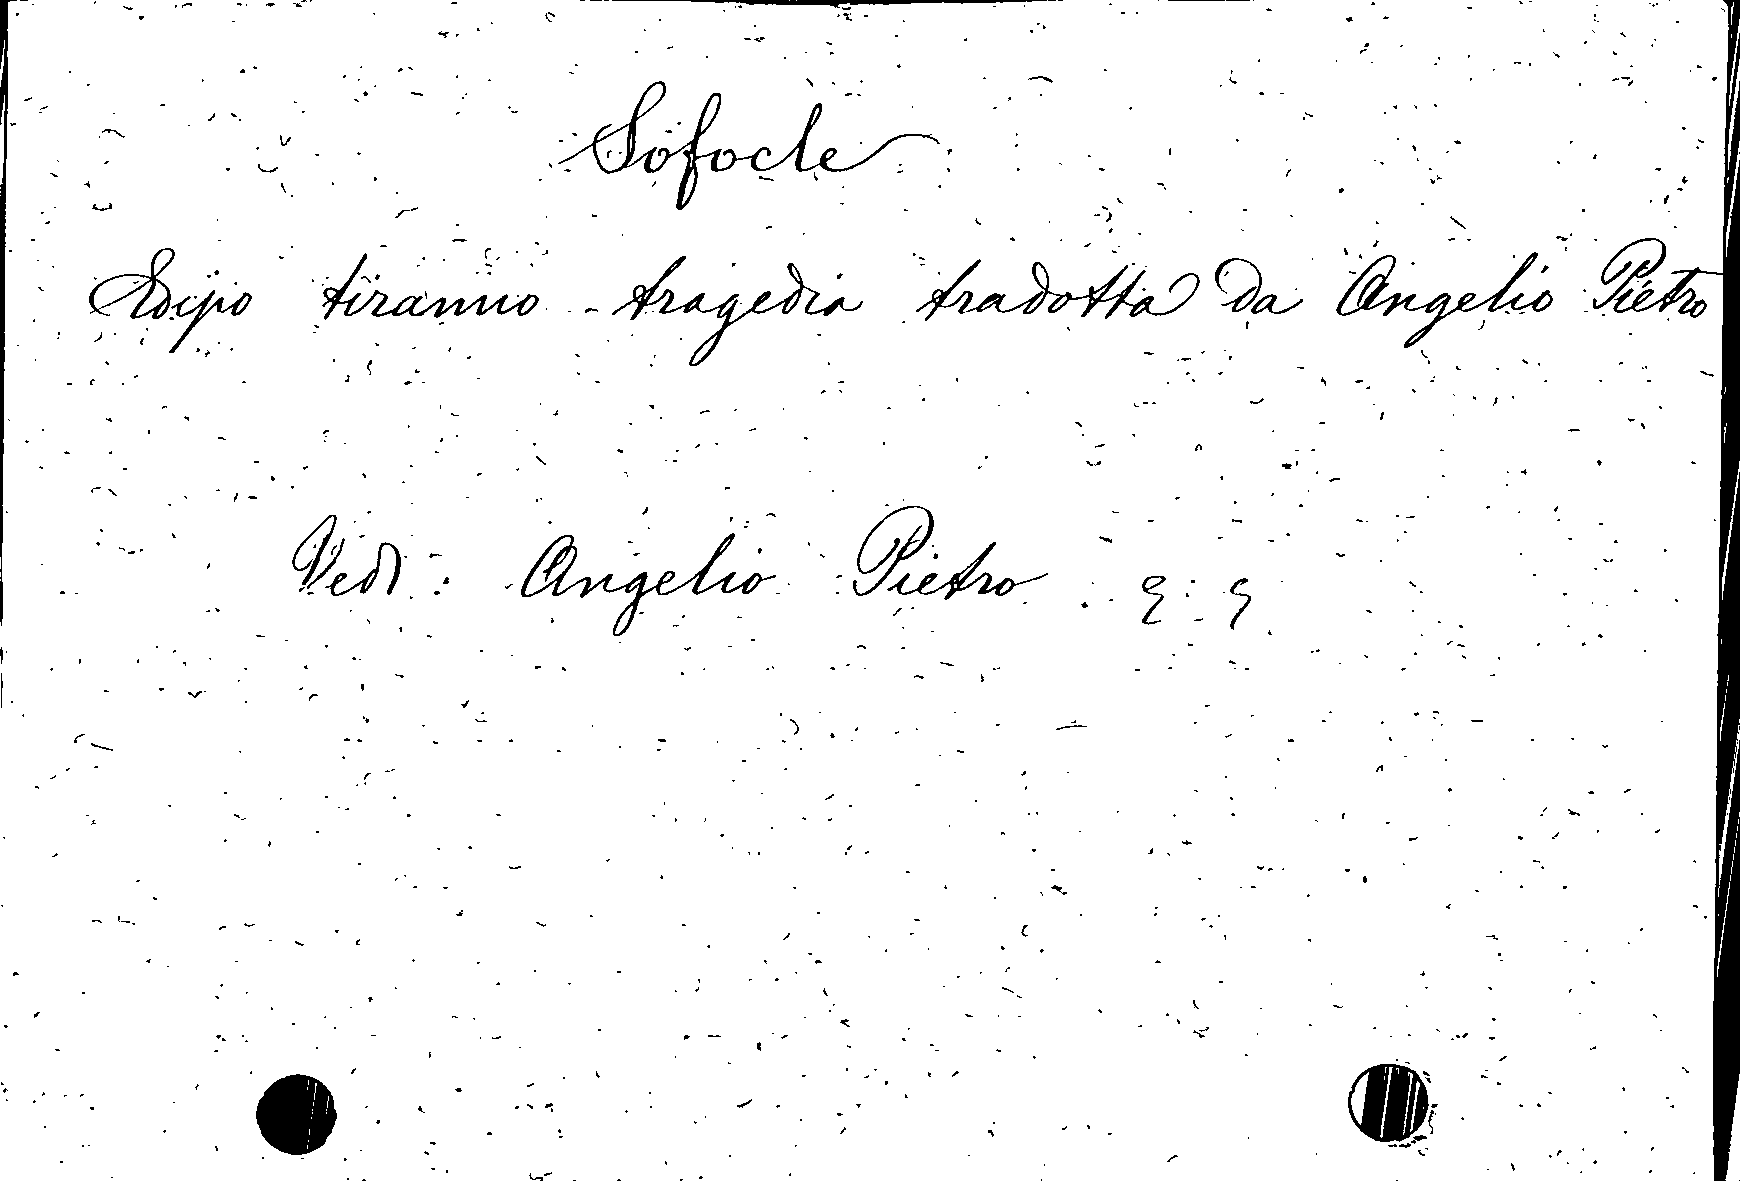 Sofocle
Edipo tiranno - tragedia tradotta da Angelio Pietro
Vedi: Angelio Pietro